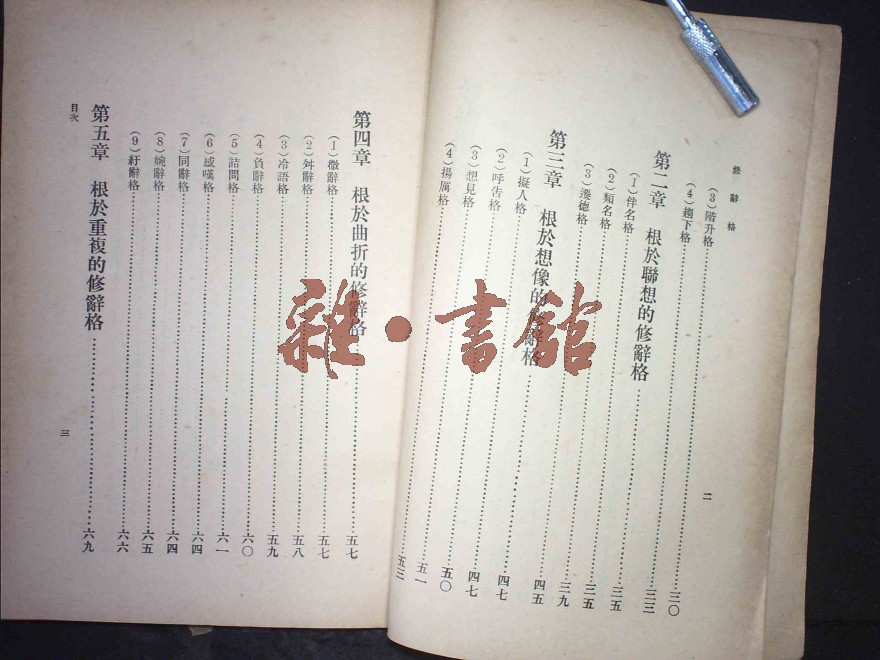 修辭格
(3)階升格……三〇
(4)趨下格……三三
第二章 根於聯想的修辭格……三五
(1)伴名格……三五
(2)類名格……三九
(3)遷德格……四五
第三章 根於想像的修辭格……四七
(1)擬人格……四七
(2)呼告格……五〇
(3)想見格……五一
(4)揚厲格……五三
二
第四章 根於曲折的修辭格……五七
(1)微辭格……五七
(2)舛辭格……五八
(3)冷語格……五九
(4)負辭格……六〇
(5)詰問格……六一
(6)感嘆格……六四
(7)同辭格……六四
(8)婉辭格……六五
(9)紆辭格……六六
第五章 根於重複的修辭格……六九
目次
三
雜·書館